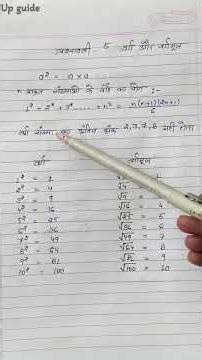 Up guide
प्रश्नावली 5 वर्ग और वर्गमूल
a² = a × a
n प्राकृत संख्याओं के वर्ग का योग :-
1² + 2² + 3² ..... + n² = n(n+1)(2n+1)/6
वर्ग संख्या का अंतिम अंक 2,3,7,8 नहीं होता
वर्ग वर्गमूल
1² = 1 √1
2² = 4 √4
3² = 9 √9
4² = 16 √16 = 4
5² = 25 √25 = 5
6² = 36 √36 = 6
7² = 49 √49 = 7
8² = 64 √64 = 8
9² = 81 √81 = 9
10² = 100 √100 = 10